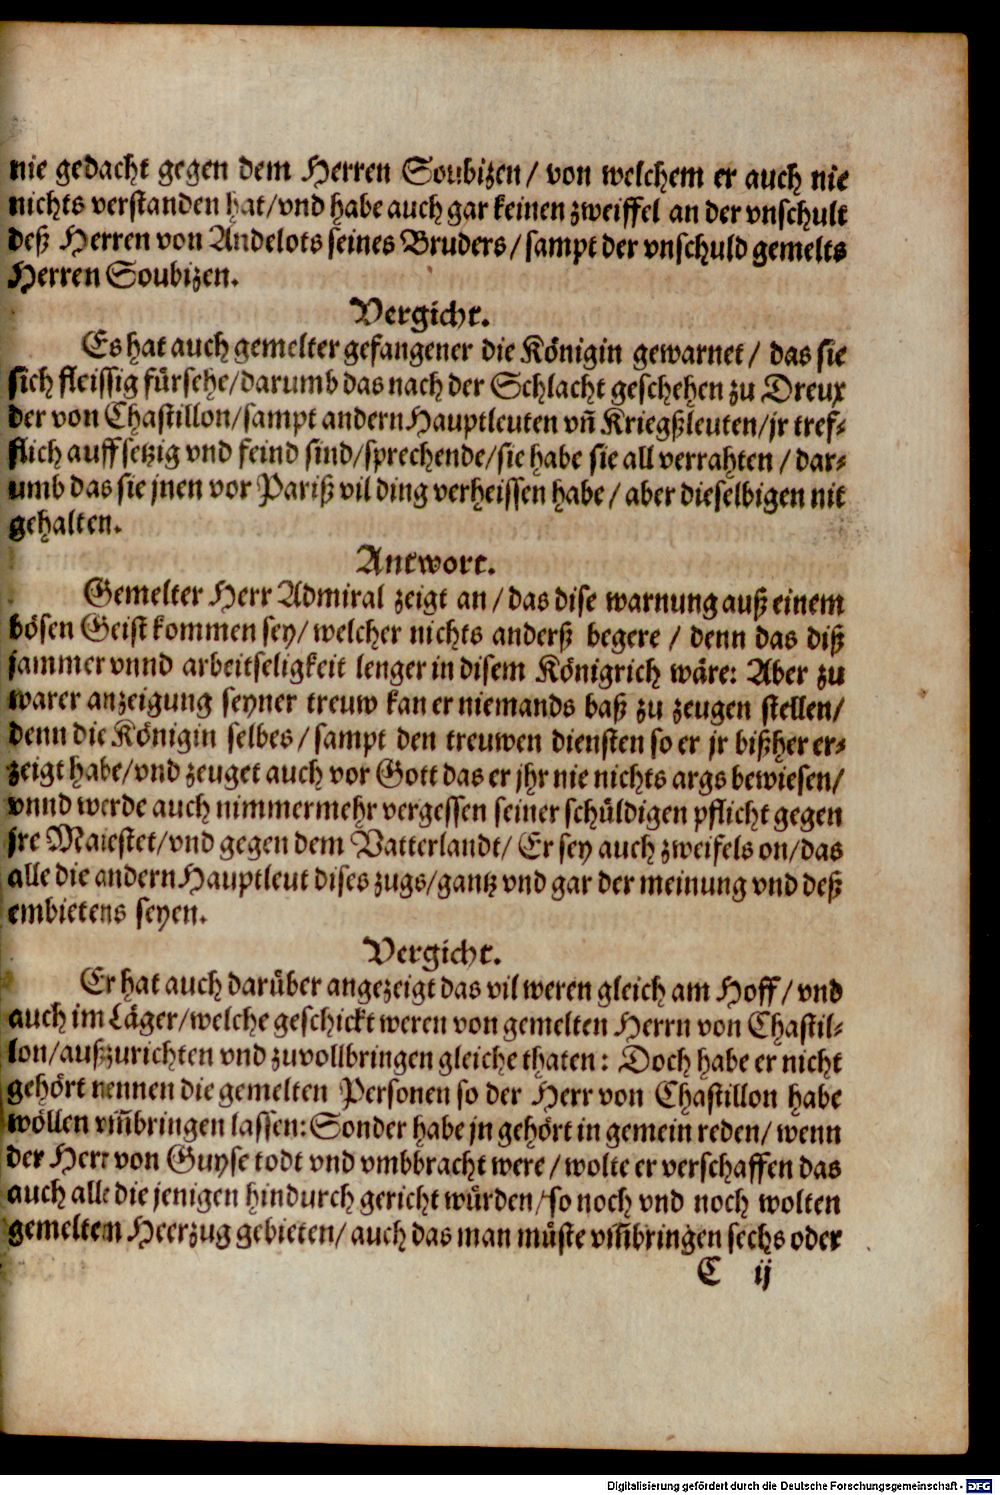 nie gedacht gegen dem Herren Soubizen / von welchem er auch nie
nichts verstanden hat/vnd habe auch gar keinen zweiffel an der vnschult
deß Herren von Andelots seines Bruders / sampt der vnschuld gemelts
Herren Soubizen.
Vergicht.
Es hat auch gemelter gefangener die Königin gewarnet / das sie
sich fleissig fürsehe/darumb das nach der Schlacht geschehen zu Dreux
der von Chastillon/sampt andern Hauptleuten vñ Kriegßleuten/jr tref-
flich auffsetzig vnd feind sind/sprechende/sie habe sie all verrahten / dar-
umb das sie jnen vor Pariß vil ding verheissen habe / aber dieselbigen nit
gehalten.
Antwort.
Gemelter Herr Admiral zeigt an / das dise warnung auß einem
bösen Geist kommen sey/ welcher nichts anderß begere / denn das diß
jammer vnnd arbeitseligkeit lenger in disem Königrich wäre: Aber zu
warer anzeigung seyner treuw kan er niemands baß zu zeugen stellen/
denn die Königin selbes / sampt den treuwen diensten so er jr bißher er-
zeigt habe/vnd zeuget auch vor Gott das er jhr nie nichts args bewiesen/
vnnd werde auch nimmermehr vergessen seiner schüldigen pflicht gegen
jre Maiestet/vnd gegen dem Vatterlandt/ Er sey auch zweifels on/das
alle die andern Hauptleut dises zugs/gantz vnd gar der meinung vnd deß
embietens seyen.
Vergicht.
Er hat auch darüber angezeigt das vil weren gleich am Hoff / vnd
auch im Läger/welche geschickt weren von gemelten Herrn von Chastil-
lon/außzurichten vnd zuvollbringen gleiche thaten: Doch habe er nicht
gehört nennen die gemelten Personen so der Herr von Chastillon habe
wöllen vm̃bringen lassen: Sonder habe jn gehört in gemein reden/ wenn
der Herr von Guyse todt vnd vmbbracht were / wolte er verschaffen das
auch alle die jenigen hindurch gericht würden/ so noch vnd noch wolten
gemeltem Heerzug gebieten/ auch das man müste vm̃bringen sechs oder
C ij
Digitalisierung gefördert durch die Deutsche Forschungsgemeinschaft - DFG